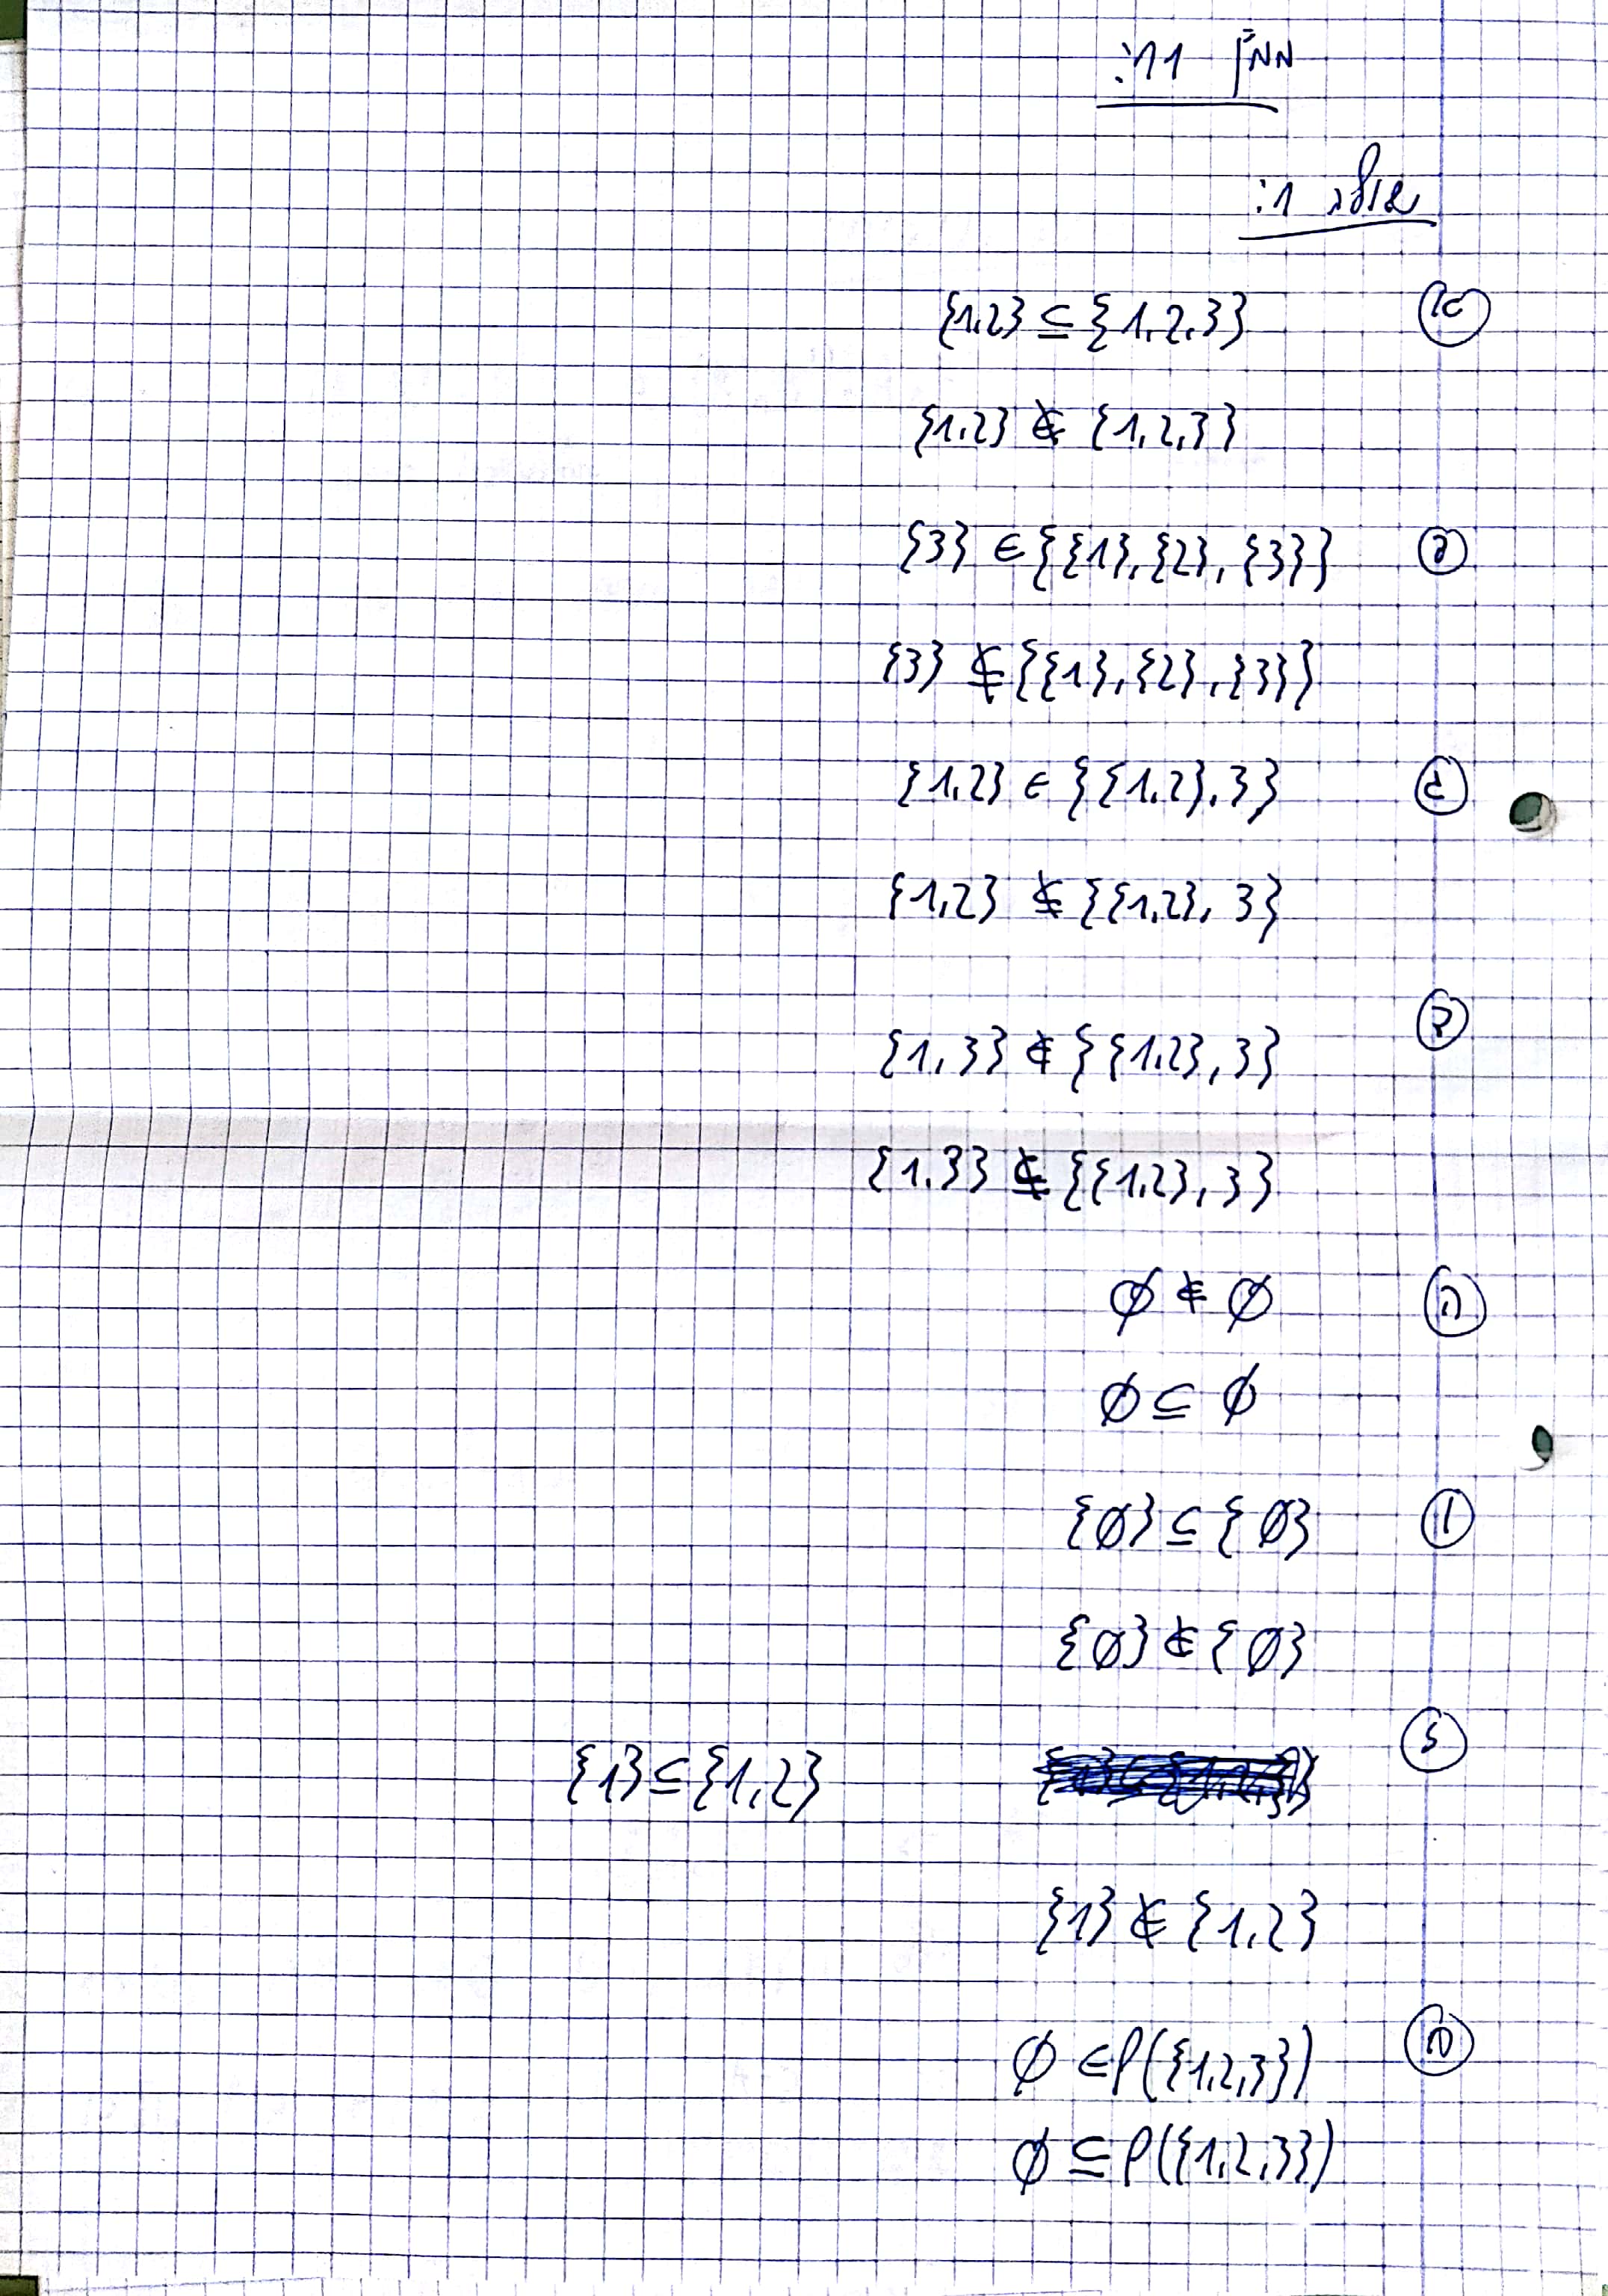 ממ"ן 11:
שאלה 1:
א {1,2} ⊆ {1,2,3}
{1,2} ∉ {1,2,3}
ב {3} ∈ {{1},{2},{3}}
{3} ⊈ {{1},{2},{3}}
ג {1,2} ∈ {{1,2},3}
{1,2} ⊈ {{1,2},3}
ד {1,3} ∉ {{1,2},3}
{1,3} ⊈ {{1,2},3}
ה ∅ ∉ ∅
∅ ⊆ ∅
ו {∅} ⊆ {∅}
{∅} ∉ {∅}
ז {1} ⊆ {1,2}
{1} ∉ {1,2}
ח ∅ ∈ P({1,2,3})
∅ ⊆ P({1,2,3})